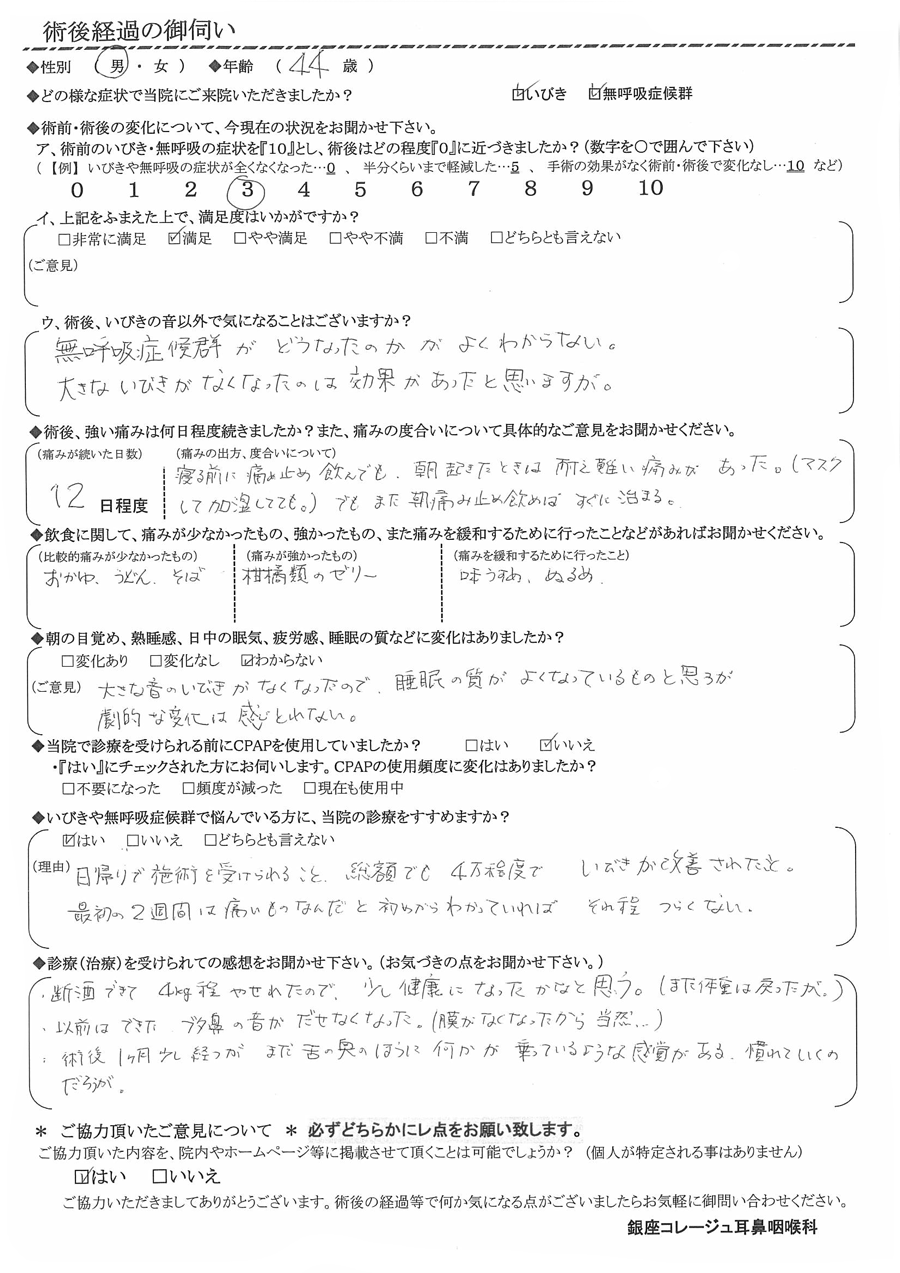 術後経過の御伺い
◆性別 ( 男 ・ 女 ) ◆年齢 ( 44 歳 )
◆どの様な症状で当院にご来院いただきましたか? ☑いびき ☑無呼吸症候群
◆術前・術後の変化について、今現在の状況をお聞かせ下さい。
ア、術前のいびき・無呼吸の症状を『10』とし、術後はどの程度『0』に近づきましたか?(数字を○で囲んで下さい)
(【例】いびきや無呼吸の症状が全くなくなった…0 、 半分くらいまで軽減した…5 、 手術の効果がなく術前・術後で変化なし…10 など)
0 1 2 3 4 5 6 7 8 9 10
イ、上記をふまえた上で、満足度はいかがですか?
□非常に満足 ☑満足 □やや満足 □やや不満 □不満 □どちらとも言えない
(ご意見)
ウ、術後、いびきの音以外で気になることはございますか?
無呼吸症候群が どうなったのかが よくわからない。
大きないびきがなくなったのは効果があったと思いますが。
◆術後、強い痛みは何日程度続きましたか?また、痛みの度合いについて具体的なご意見をお聞かせください。
(痛みが続いた日数) (痛みの出方、度合いについて)
寝る前に痛み止め飲んでも、朝起きたときは耐え難い痛みがあった。(マスク
12 日程度 して加湿してても。) でもまた朝痛み止め飲めばすぐに治まる。
◆飲食に関して、痛みが少なかったもの、強かったもの、また痛みを緩和するために行ったことなどがあればお聞かせください。
(比較的痛みが少なかったもの) (痛みが強かったもの) (痛みを緩和するために行ったこと)
おかゆ、うどん、そば 柑橘類のゼリー 味うすめ、ぬるめ
◆朝の目覚め、熟睡感、日中の眠気、疲労感、睡眠の質などに変化はありましたか?
□変化あり □変化なし ☑わからない
(ご意見) 大きな音のいびきがなくなったので、睡眠の質がよくなっているものと思うが
劇的な変化は感じとれない。
◆当院で診療を受けられる前にCPAPを使用していましたか? □はい ☑いいえ
・『はい』にチェックされた方にお伺いします。CPAPの使用頻度に変化はありましたか?
□不要になった □頻度が減った □現在も使用中
◆いびきや無呼吸症候群で悩んでいる方に、当院の診療をすすめますか?
☑はい □いいえ □どちらとも言えない
(理由) 日帰りで施術を受けられること、総額でも4万程度で いびきが改善されたこと。
最初の2週間は痛いものなんだと初めからわかっていれば それ程つらくない。
◆診療(治療)を受けられての感想をお聞かせ下さい。(お気づきの点をお聞かせ下さい。)
・断酒できて 4kg程やせれたので、少し健康になったかなと思う。(また体重は戻ったが。)
・以前はできた ブタ鼻の音がだせなくなった。(膜がなくなったから当然…)
・術後1ヶ月少し経つが まだ舌の奥のほうに何かが乗っているような感覚がある、慣れていくの
だろうが。
＊ ご協力頂いたご意見について ＊ 必ずどちらかにレ点をお願い致します。
ご協力頂いた内容を、院内やホームページ等に掲載させて頂くことは可能でしょうか? (個人が特定される事はありません)
☑はい □いいえ
ご協力いただきましてありがとうございます。術後の経過等で何か気になる点がございましたらお気軽に御問い合わせください。
銀座コレージュ耳鼻咽喉科